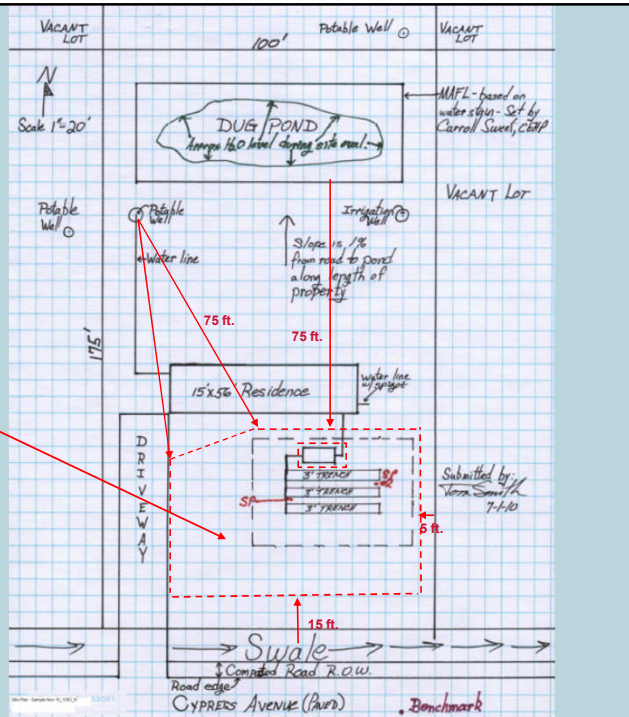 VACANT
LOT
100'
Potable Well
VACANT
LOT
N
Scale 1"=20'
DUG POND
Approx H2O level during site eval.
MAFL - based on
water stain - Set by
Carroll Sweet, CEHP
VACANT LOT
Potable
Well
Potable
Well
Irrigation
Well
Water line
Slope is 1%
from road to pond
along length of
property
75 ft.
75 ft.
175'
15'x56' Residence
Water line
w/ spigot
DRIVEWAY
3' TRENCH
SP
3' TRENCH
SP
3' TRENCH
Submitted by:
Tom Smith
7-1-10
5 ft.
15 ft.
Swale
Compacted Road R.O.W.
Road edge
CYPRESS AVENUE (PAVED)
. Benchmark